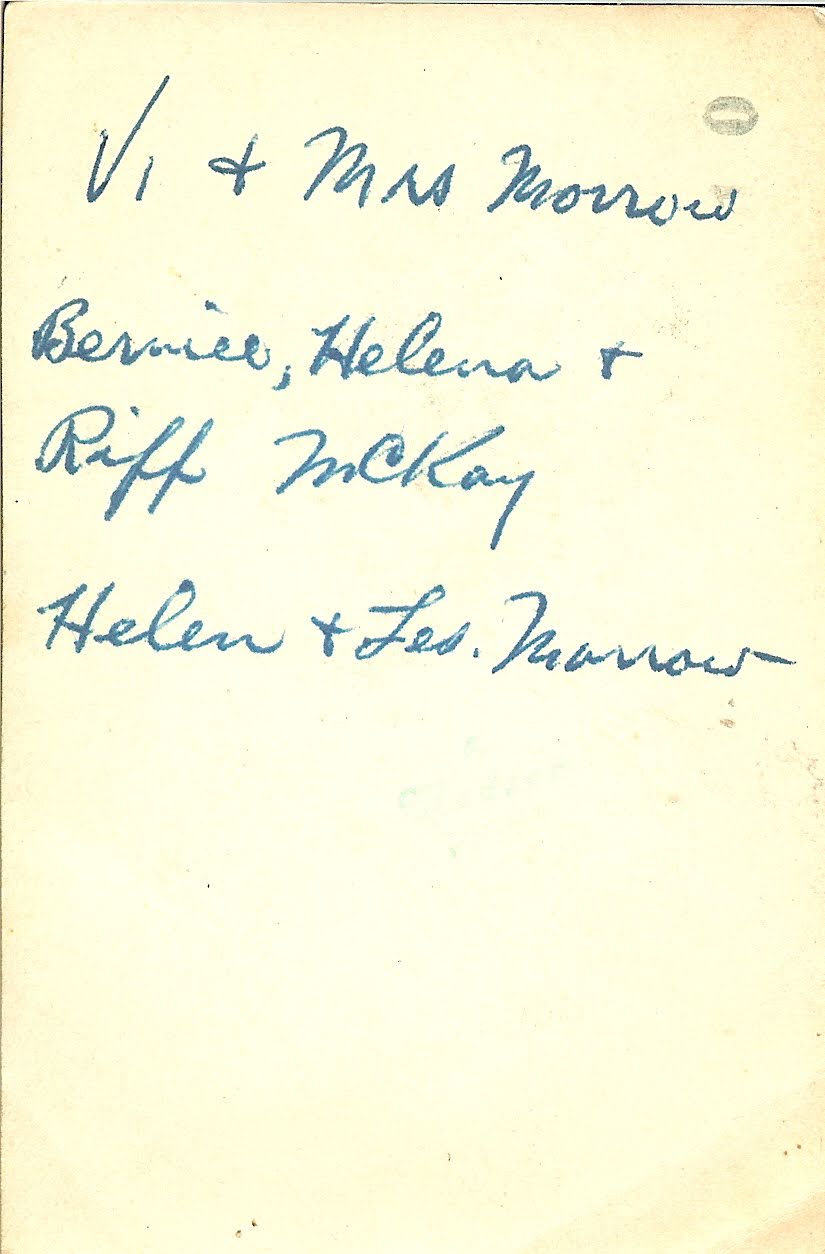 Vi + Mrs Morrow
Bernice, Helena +
Riff McKay
Helen + Les. Morrow